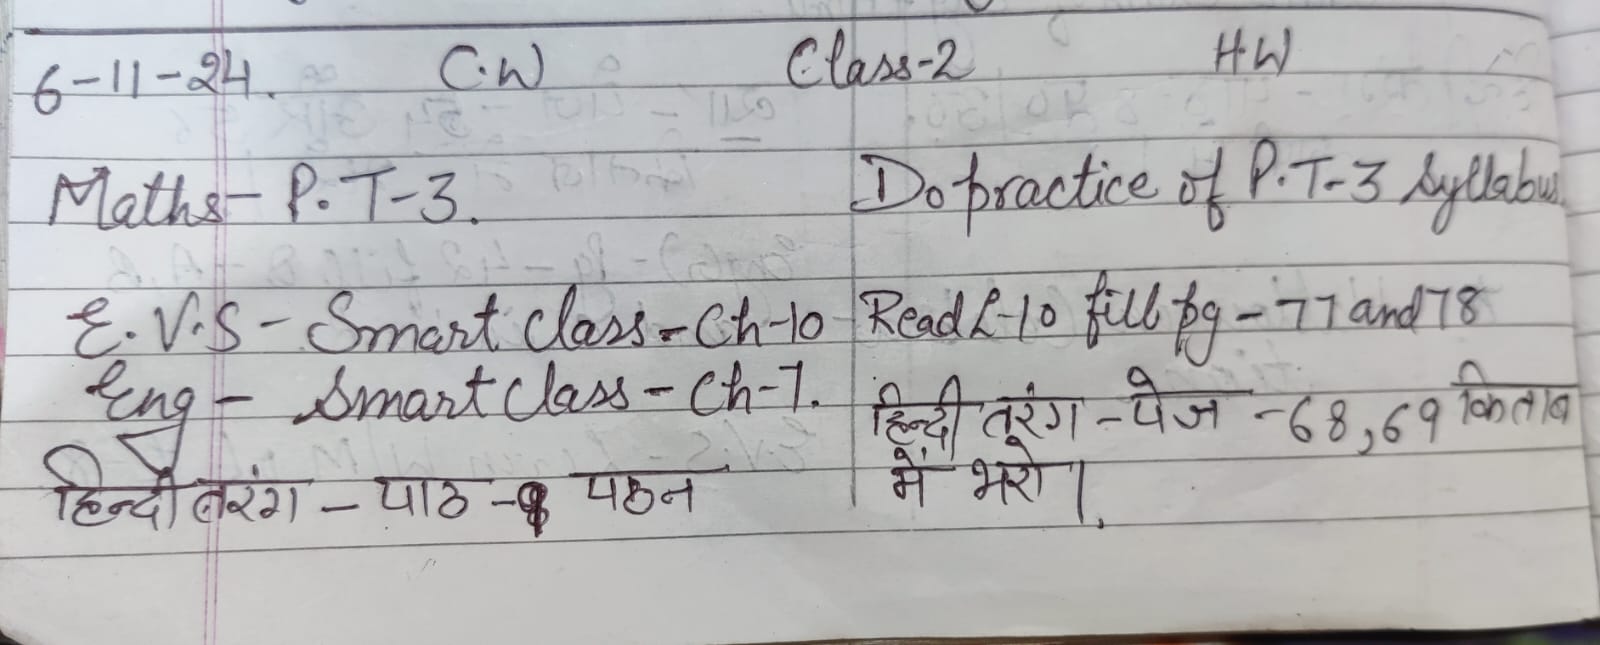 6-11-24. C.W Class-2 H.W
Maths- P.T-3. Do practice of P.T-3 Syllabus.
E.V.S - Smart class - Ch-10 Read L-10 fill pg - 77 and 78
Eng - Smart class - Ch-7. हिन्दी तरंग - पेज - 68,69 किताब
हिन्दी तरंग - पाठ - पठन में भरो।